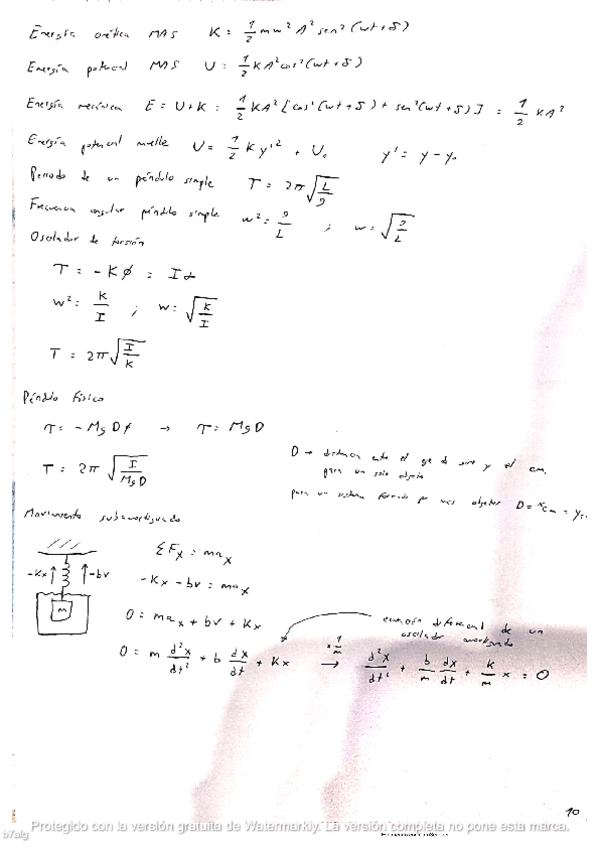 Energía cinética MAS K = 1/2 mw² A² sen² (wt + δ)
Energía potencial MAS U = 1/2 KA² cos² (wt + δ)
Energía mecánica E = U + K = 1/2 KA² [cos² (wt + δ) + sen² (wt + δ)] = 1/2 KA²
Energía potencial muelle U = 1/2 K y'² + U₀ y' = y - y₀
Periodo de un péndulo simple T = 2π√(L/g)
Frecuencia angular péndulo simple w² = g/L ; w = √(g/L)
Oscilador de torsión
τ = -Kφ = Iα
w² = K/I ; w = √(K/I)
T = 2π√(I/K)
Péndulo físico
τ = -MgDφ → τ = MgD
D → distancia entre el eje de giro y el cm.
para un solo objeto
T = 2π√(I/MgD)
para un sistema formado por mas objetos D = x cm =
Movimiento subamortiguado
ΣFx = max
-Kx -bv
-Kx - bv = max
m
0 = max + bv + Kx
ecuación diferencial de un
oscilador amortiguado
0 = m d²x/dt² + b dx/dt + Kx x 1/m → d²x/dt² + b/m dx/dt + K/m x = 0
10
Protegido con la versión gratuita de Watermarkly. La versión completa no pone esta marca.
b7alg